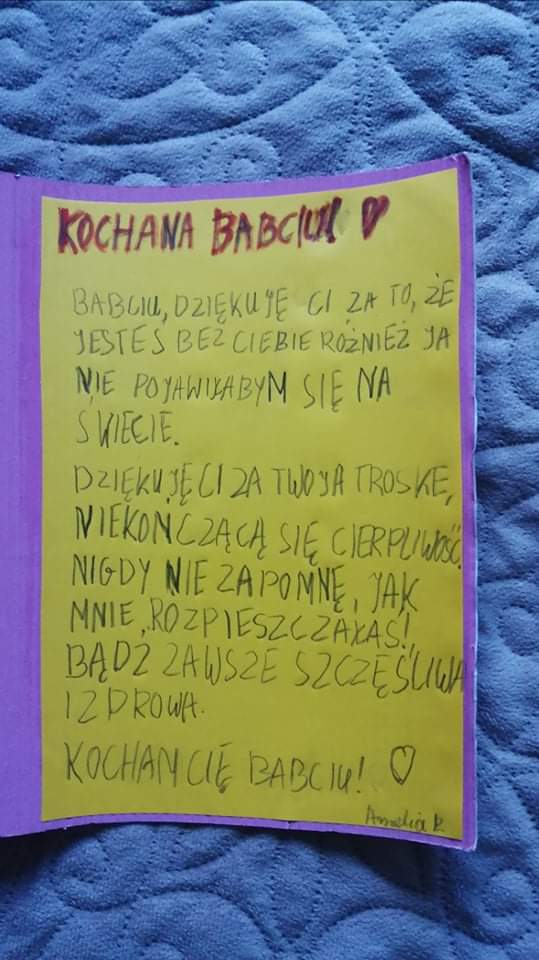 KOCHANA BABCIU! ♥
BABCIU, DZIĘKUJĘ CI ZA TO, ŻE
JESTEŚ BEZ CIEBIE RÓŻNIEŻ JA
NIE POJAWIŁABYM SIĘ NA
ŚWIECIE.
DZIĘKUJĘ CI ZA TWOJĄ TROSKĘ,
NIEKOŃCZĄCĄ SIĘ CIERPLIWOŚĆ.
NIGDY NIE ZAPOMNĘ, JAK
MNIE „ROZPIESZCZAŁAŚ!"
BĄDŹ ZAWSZE SZCZĘŚLIWA
I ZDROWA.
KOCHAM CIĘ BABCIU! ♡
Amelia K.